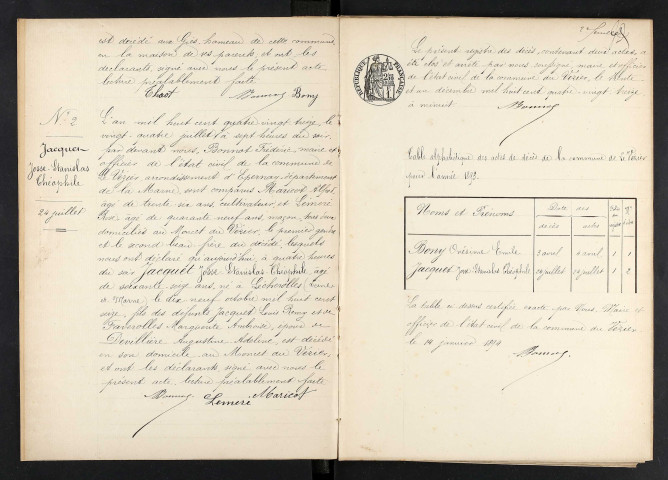 est décédé au Gas, hameau de cette commune
en la maison de ses parents et ont les
déclarants, signé avec nous le présent acte
lecture préalablement faite
Bonnot Bony
N° 2
Jacquet
Josse Stanislas
Théophile
24 juillet
L'an mil huit cent quatre vingt treize, le
vingt quatre juillet à sept heures du soir
par devant nous, Bonnot Frédéric, maire et
officier de l'état civil de la commune de
Le Vézier arrondissement d'Epernay département
de la Marne sont comparus Maricot
âgé de trente six ans, cultivateur, et Lemeré
âgé de quarante neuf ans, maçon, tous deux
domiciliés au Moncet du Vézier, le premier gendre
et le second beau frère du décédé, lesquels
nous ont déclaré qu'aujourd'hui à quatre heures
du soir Jacquet Josse Stanislas Théophile, âgé
de soixante seize ans, né à (Seine
et Marne) le dix neuf octobre mil huit cent
seize, fils des défunts Jacquet Louis Remy et de
Faverolles Marguerite Ambroise, époux de
Devillière Augustine Adeline, est décédé
en son domicile au Moncet du Vézier,
et ont les déclarants signé avec nous le
présent acte, lecture préalablement faite
Bonnot Lemeré Maricot
RÉPUBLIQUE FRANÇAISE
Le présent registre des décès, contenant deux actes, a
été clos et arrêté par nous soussigné, maire et officier
de l'état civil de la commune du Vézier, le trente
et un décembre mil huit cent quatre vingt treize
à minuit.
Bonnot
Table alphabétique des actes de décès de la commune de Le Vézier
pour l'année 1893.
Noms et Prénoms Date des
décès actes
Bony Emile 3 avril 4 avril 1 1
Jacquet Josse Stanislas Théophile 24 juillet 24 juillet 1 2
La table ci dessus certifiée exacte par Nous, Maire et
officier de l'état civil de la commune du Vézier
le 14 janvier 1894
Bonnot